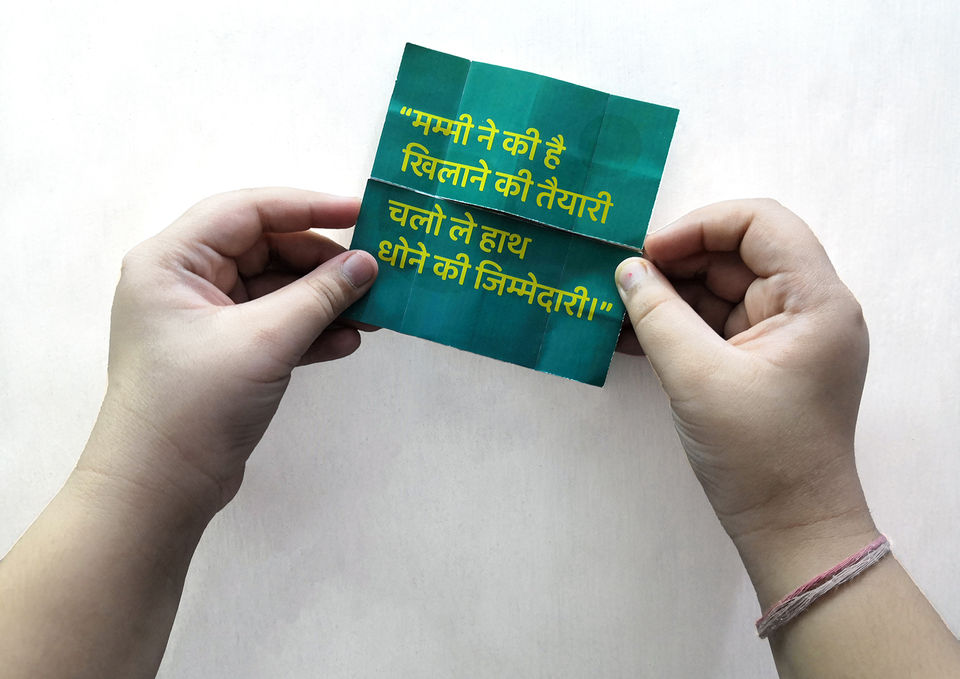 “मम्मी ने की है
खिलाने की तैयारी
चलो ले हाथ
धोने की जिम्मेदारी।”